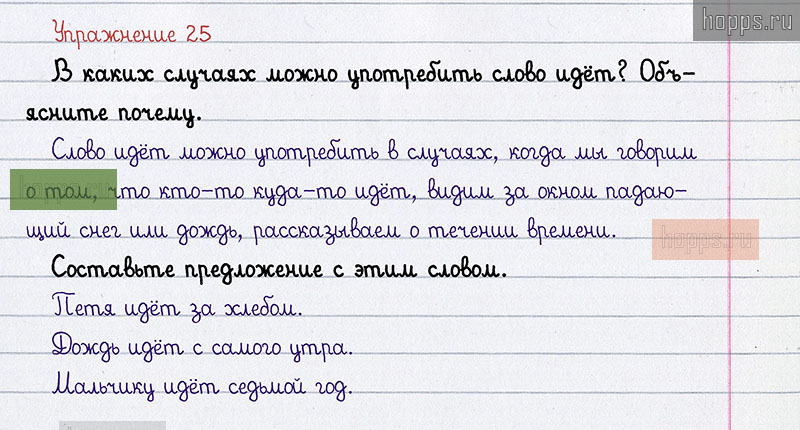 hopps.ru
Упражнение 25
В каких случаях можно употребить слово идёт? Объ-
ясните почему.
Слово идёт можно употребить в случаях, когда мы говорим
о том, что кто-то куда-то идёт, видим за окном падаю-
щий снег или дождь, рассказываем о течении времени.
hopps.ru
Составьте предложение с этим словом.
Петя идёт за хлебом.
Дождь идёт с самого утра.
Мальчику идёт седьмой год.